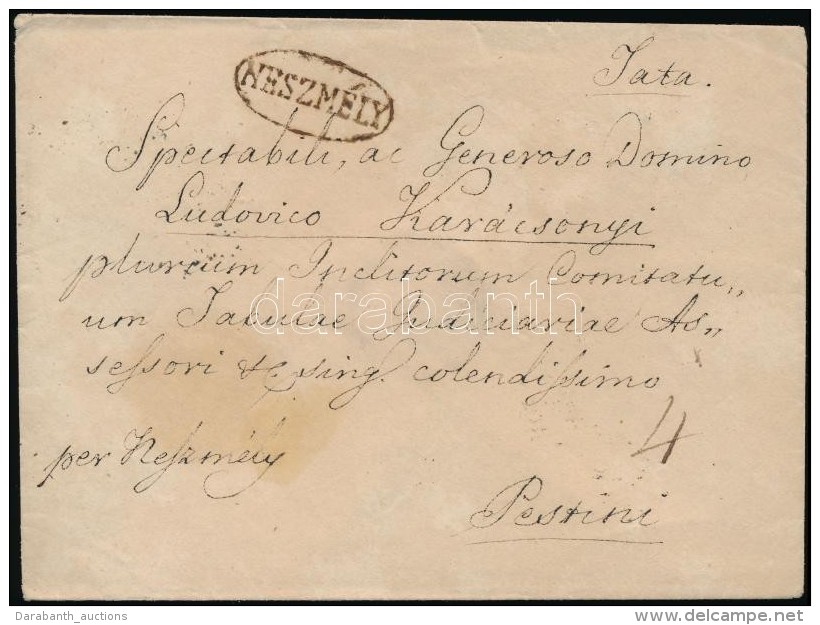 Tata.
NESZMÉLY
Spectabili, ac Generoso Domino
Ludovico Karácsonyi
plurium Inclitorum Comitatu„
um Tabulae Judiciariae As„
sessori &c sing. colendissimo
per Neszmély
4
Pestini
darabanth
Darabanth_auctions
www.delcampe.net